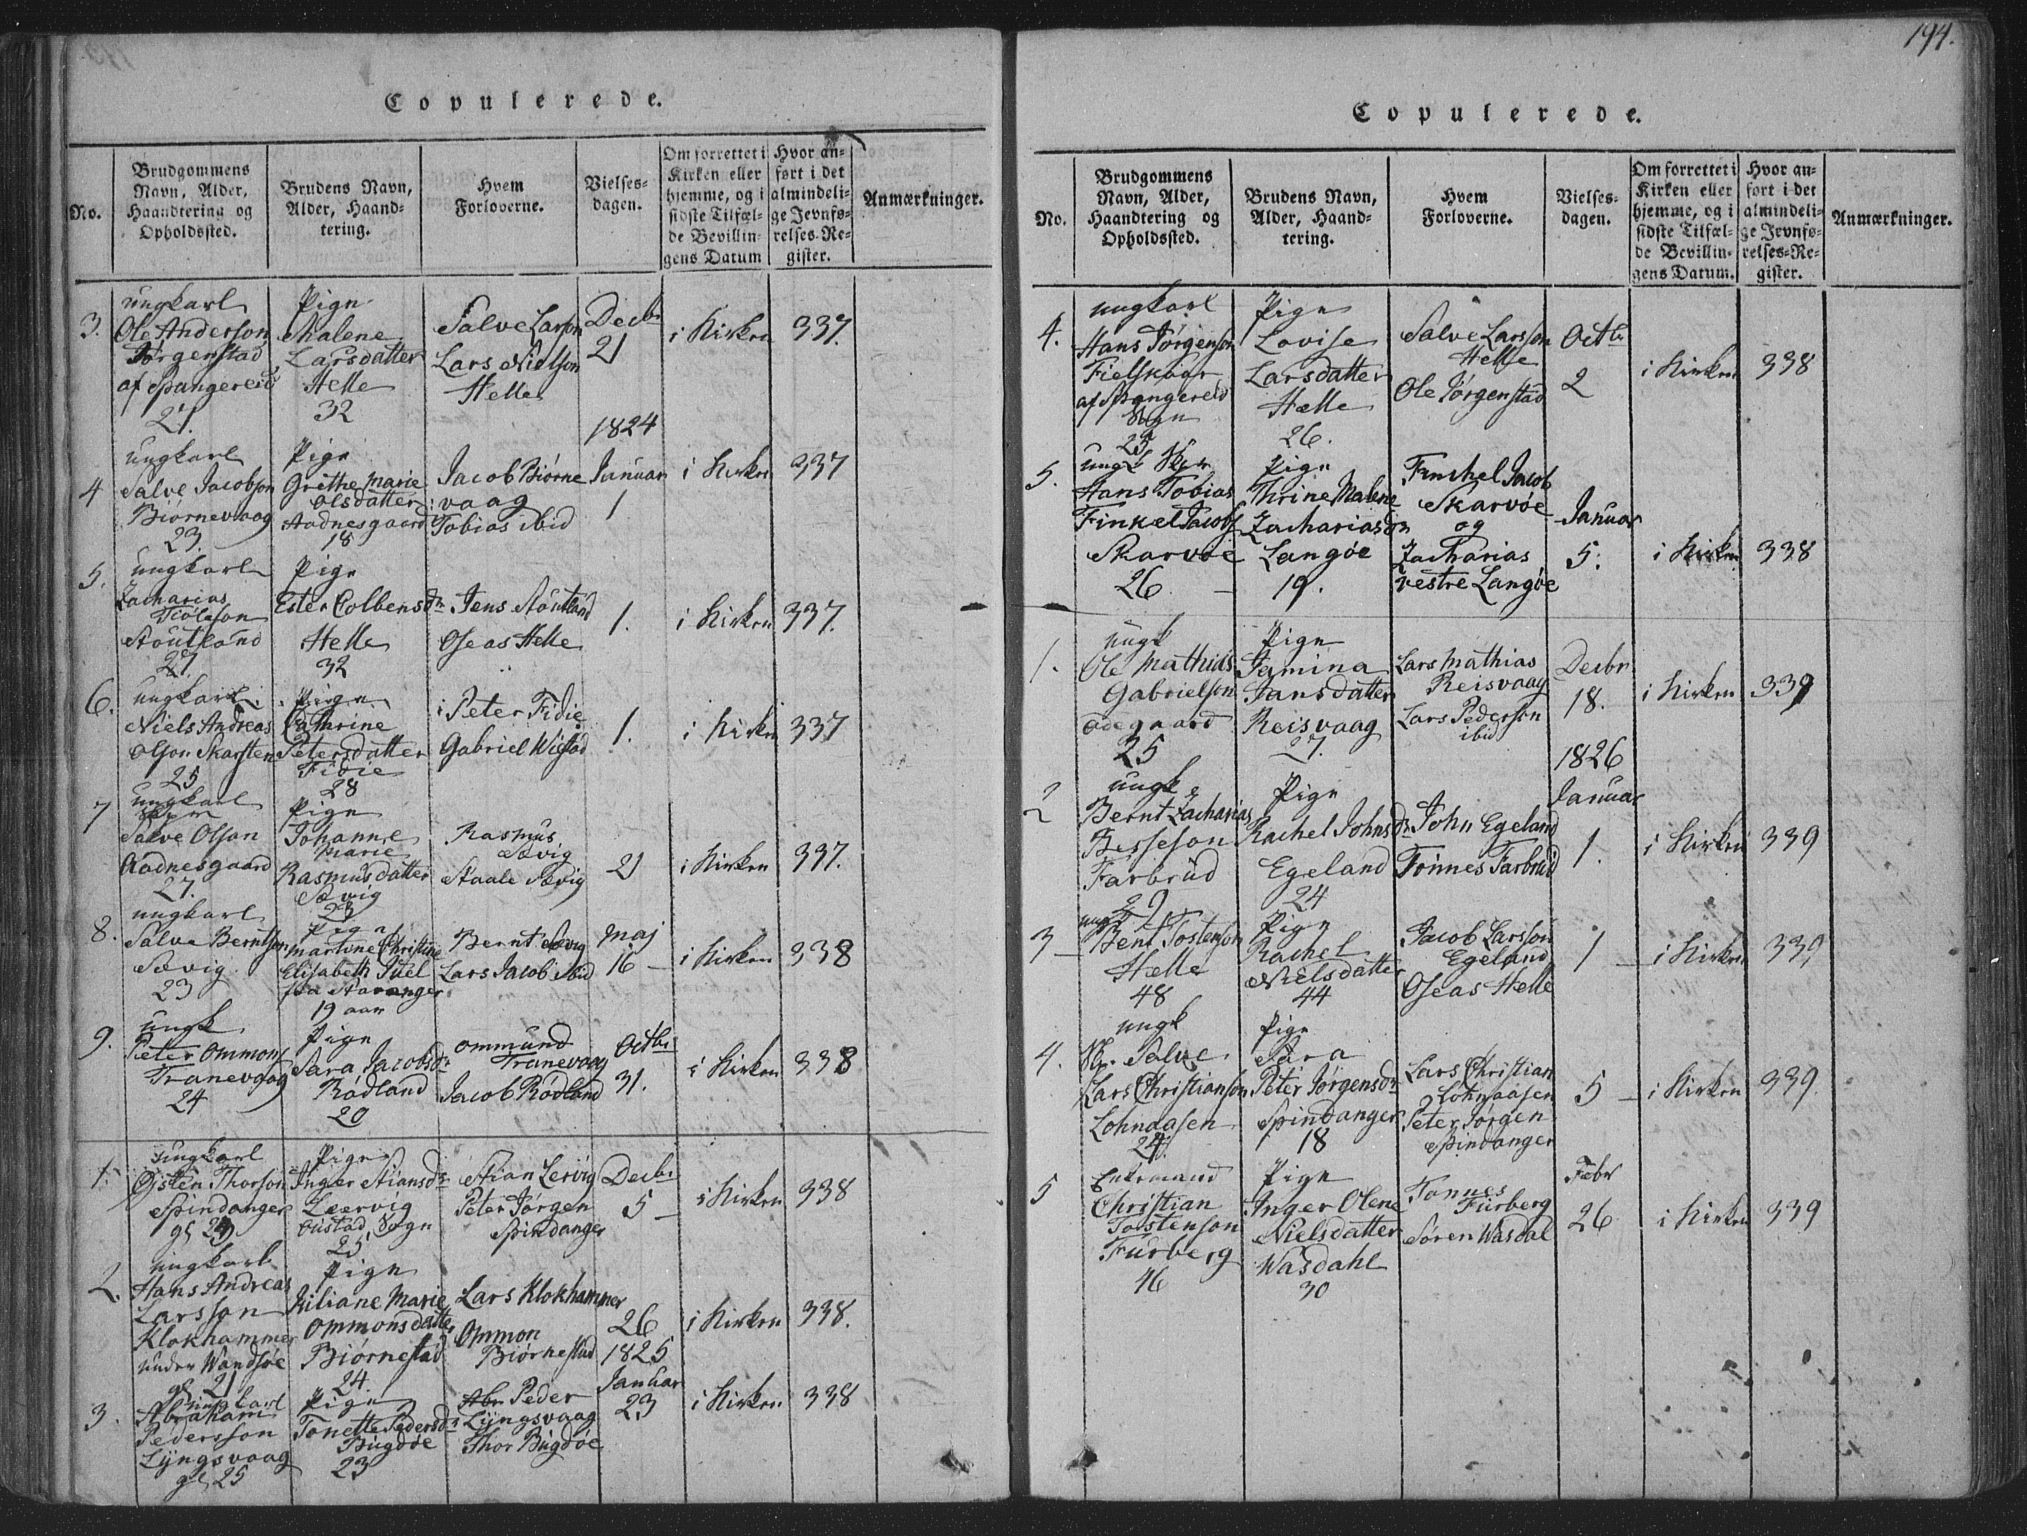 Copulerede.
No.
Brudgommens
Navn, Alder,
Haandtering og
Opholdssted.
Brudens Navn,
Alder, Haand-
tering.
Hvem
Forloverne.
Vielses-
dagen.
Om forrettet i
Kirken eller
hjemme, og i
sidste Tilfæl-
de Bevillin-
gens Datum
Hvor an-
ført i det
almindeli-
ge Jevnfø-
relses-Re-
gister.
Anmærkninger.
3.
ungkarl
Ole Anderson
Jørgenstad
af Spangereid
27.
Pige
Malene
Larsdatter
Helle
32
Salve Larson
Lars Nielson
Helle
Decbr
21
i Kirken
337.
1824
4
ungkarl
Salve Jacobson
Biørnevaag
23.
Pige
Grethe Marie
Olsdatter
Aadnesgaard
18
Jacob Biørne
vaag
Tobias ibid
Januar
1
i Kirken
337
5.
ungkarl
Zacharias
Stoutland
27.
Pige
Ester Colbensdr
Helle
32
Jens Stoutland
Oseas Helle
1.
i Kirken
337.
6.
ungkarl
Niels Andreas
Olson Skarsten
25
Pige
Cathrine
Petersdatter
Fidie
28
Peter Fidie
Gabriel
1.
i Kirken
337
7
ungkarl
Salve Olson
Aadnesgaard
27.
Pige
Johanne
Marie
Rasmusdatter
Sævig
23
Rasmus
Sævig
Staale Sævig
21
i Kirken
337.
8.
ungkarl
Salve Berntson
Sævig
23
Pige
Martine Christine
Elisabeth Juel
fra Stavanger
19 aar
Bernt Sævig
Lars Jacob ibid
Maj
16
i Kirken
338
9.
ungk
Peter Ommons
Tranevaag
24
Pige
Sara Jacobsdr
Rødland
20
Ommund
Tranevaag
Jacob Rødland
Octbr
31.
i Kirken
338
1.
ungkarl
Østen Thorson
Spindanger
gl 29
Pige
Inger Stiansdr
Leervig
Oustad Sogn
25.
Stian Lervig
Peter Jørgen
Spindanger
Decbr
5
i Kirken
338
2.
ungkarl
Hans Andreas
Larsson
Klokhammer
under Wandsøe
gl 21
Pige
Juliane Marie
Ommonsdatter
Biørnestad
24.
Lars Klokhammer
Ommon
Biørnestad
26
1825
i Kirken
338.
3.
ungkarl
Abraham
Pedersson
Lyngsvaag
gl 25
Pige
Tonette Pedersdr
Bugdøe
23
Peder
Lyngsvaag
Thor Bugdøe
Januar
23
i Kirken
338
194.
Copulerede.
No.
Brudgommens
Navn, Alder,
Haandtering og
Opholdssted.
Brudens Navn,
Alder, Haand-
tering.
Hvem
Forloverne.
Vielses-
dagen.
Om forrettet i
Kirken eller
hjemme, og i
sidste Tilfæl-
de Bevillin-
gens Datum.
Hvor an-
ført i det
almindeli-
ge Jevnfø-
relses-Re-
gister.
Anmærkninger.
4.
ungkarl
Hans Jørgenson
Fielskaar
af Spangereid
Sogn
25
Pige
Lovise
Larsdatter
Hælle
26.
Salve Larsson
Helle
Ole Jørgenstad
Octbr
2
i Kirken
338
5.
ungk
Hans Tobias
Finkel Jacobs
Skarvøe
26
Pige
Thrine Malene
Zachariasdr
Langøe
19.
Finchel Jacob
Skarvøe
og
Zacharias
vestre Langøe
Januar
5.
i Kirken
338
1.
ungk
Ole Mathias
Gabrielson
Odegaard
25
Pige
Jamina
Jansdatter
Reisvaag
27.
Lars Mathias
Reisvaag
Lars Pederson
ibid
Decbr
18.
i Kirken
339
1826
Januar
2
ungk
Bernt Zacharias
Besseson
Farbrud
29
Pige
Rachel Johnsdr
Egeland
24
John Egeland
Tønnes Farbrud
1.
i Kirken
339
3
ungk
Bent Tostenson
Hælle
48
Pige
Rachel
Nielsdatter
44
Jacob Larsson
Egeland
Oseas Helle
1
i Kirken
339
4.
ungk
Salve
Lars Christianson
Lohndasen
24
Pige
Sara
Peter Jørgensdr
Spindanger
18
Lars Christian
Lohnaasen
Peter Jørgen
Spindanger
5
i Kirken
339
5
Enkemand
Christian
Tostenson
Furberg
46
Pige
Inger Olene
Nielsdatter
Wasdahl
30
Tønnes
Furberg
Søren Wasdal
Febr
26
i Kirken
339